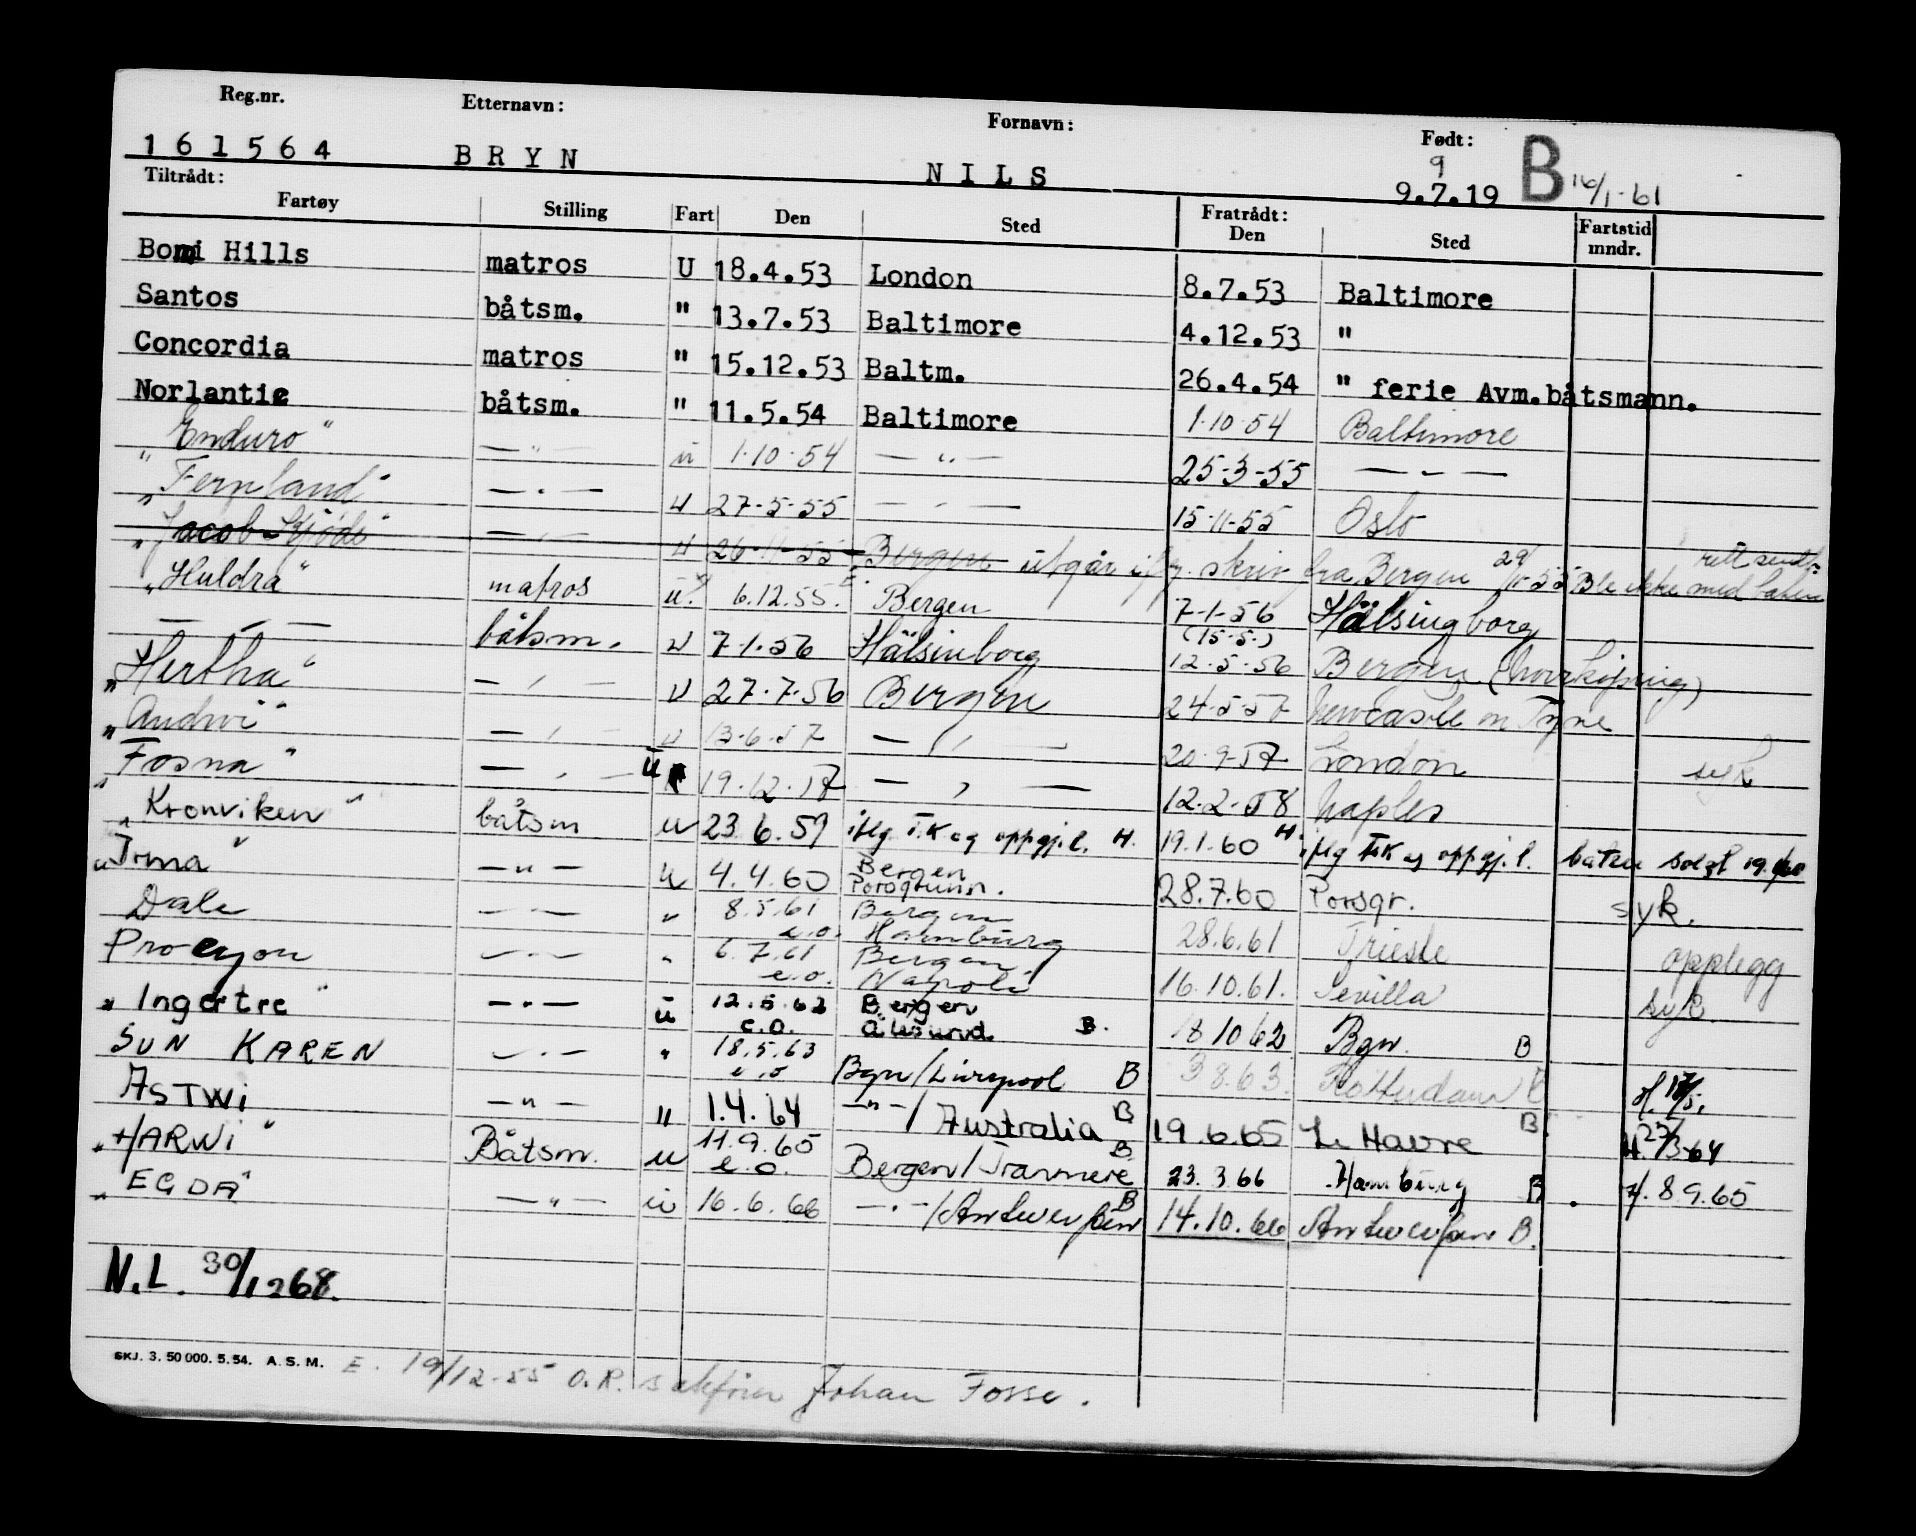 Reg.nr. Etternavn: Fornavn: Født:
161564 BRYN NILS 9.7.19 9 B 16/1-61
Tiltrådt: Fratrådt:
Fartøy Stilling Fart Den Sted Den Sted Fartstid mndr.
Bomi Hills matros U 18.4.53 London 8.7.53 Baltimore
Santos båtsm. " 13.7.53 Baltimore 4.12.53 "
Concordia matros " 15.12.53 Baltm. 26.4.54 " ferie Avm.båtsmann.
Norlantic båtsm. " 11.5.54 Baltimore 1-10-54 Baltimore
Enduro" — " — u 1-10-54 — " — 25-3-55 — " —
"Fernland" — " — u 27-5-55 — " — 15-11-55 Oslo
"Jacob Kjøde" — " — u 26-11-55 Bergen utgår ifg. skriv fra Bergen 29/11-55 Ble ikke med båten
"Huldra" matros u. 6.12.55. Bergen 7-1-56 Hälsingborg
— " — båtsm. u 7-1-56 Hälsinborg (15-5-) 12-5-56 Bergen (Norrköping)
"Hertha" — " — u 27-7-56 Bergen 24-5-57 Newcastle on Tyne
"Andwi" — " — u 13-6-57 — " — 20-9-57 London syk
"Fosna" — " — u 19-12-57 — " — 12-2-58 Naples
"Kronviken" båtsm u 23.6.59 iflg. F.K og oppgj.l. H. 19.1.60 H. iflg F.K og oppgj.l. båten solgt
"Irma" — " — u 4.4.60 Bergen Porsgrunn. 28.7.60 Porsgr. syk.
Dale — " — " 8.5.61 e.o. Bergen Hamburg 28.6.61 Trieste opplegg
Procyon — " — " 6.7.61 e.o. Bergen/ Napoli 16.10.61. Sevilla syk
"Ingertre" — " — u 12.5.62 e.o. Bergen Ålesund B. 18 10 62 Bgn. B
SUN KAREN — " — " 18.5.63 e.o Bgn/Liverpool B 3 8.63. Rotterdam B H. 17/5.
ASTWI — " — " 1.4.64 — " —/Australia B 19.6.65 Le Havre B. H. 23/3-64
"HARWI" Båtsm. u 11.9.65 e.o. Bergen/Tranmere B 23.3.66 Hamburg B. H. 8 9.65
"EGDA" — " — u 16.6.66 — " —/Antwerpen B 14.10.66 Antwerpen B.
N.L. 30/12 68.
SKJ. 3. 50 000. 5. 54. A. S. M. E. 19/12-55 O.R. sakfører Johan Fosse.